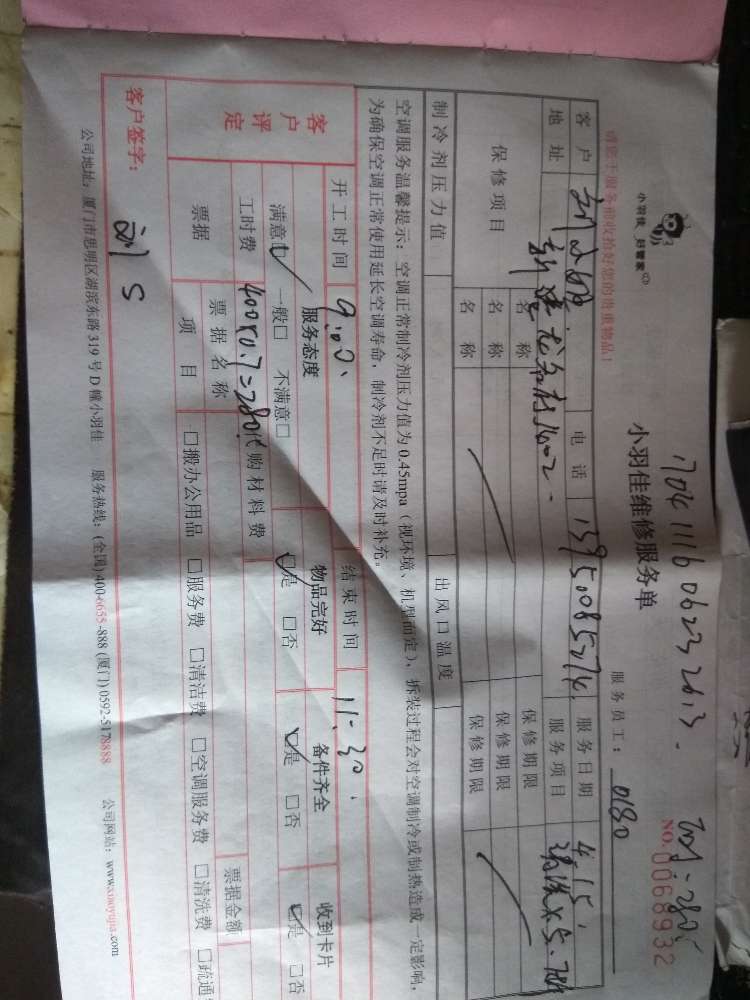 小羽佳 好管家
请您于服务前收拾好您的贵重物品!
17041116 0623 2013.
小羽佳维修服务单
NO.0068932
服务员工: 0180
客户 电话 13950085274 服务日期 4.15
地址 服务项目
保修项目 名称 保修期限
名称 保修期限
名称 保修期限
制冷剂压力值 出风口温度
空调服务温馨提示: 空调正常制冷剂压力值为0.45mpa(视环境、机型而定), 拆装过程会对空调制冷或制热造成一定影响,
为确保空调正常使用延长空调寿命, 制冷剂不足时请及时补充。
开工时间 9:00 结束时间 11:30
客户评定 服务态度 物品完好 备件齐全 收到卡片
满意□ 一般□ 不满意□ □是 □否 □是 □否 □是 □否
工时费 400x0.7=280 代购材料费
票据 票据名称 票据金额
项目 □搬办公用品 □服务费 □清洁费 □空调服务费 □清洗费 □疏通
客户签字: 刘S
公司地址: 厦门市思明区湖滨东路319号D幢小羽佳 服务热线: (全国)400-6655-888 (厦门)0592-5178888 公司网站: www.xiaoyujia.com